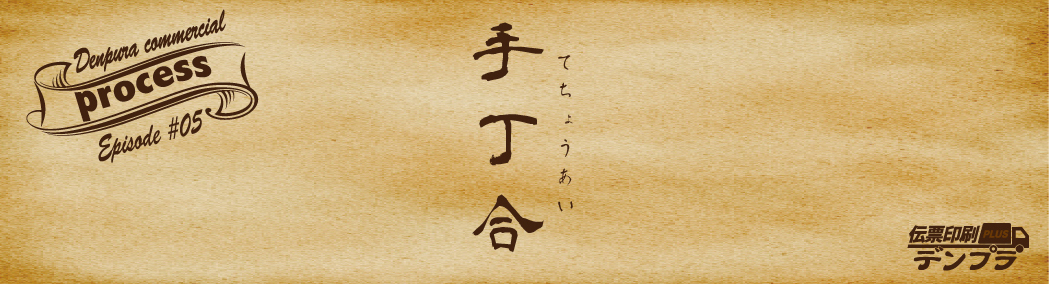 Denpura commercial
process
Episode #05
手丁合
てちょうあい
伝票印刷 PLUS
デンプラ